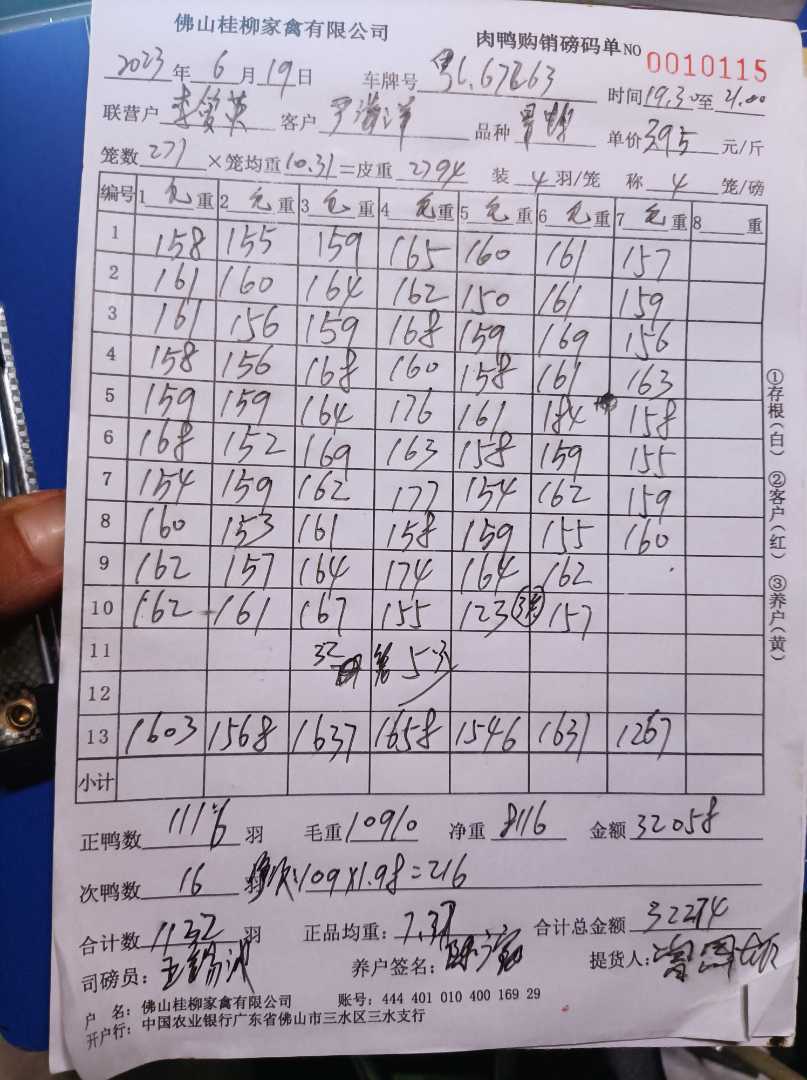 佛山桂柳家禽有限公司
肉鸭购销磅码单 NO 0010115
2023 年 6 月 19 日 车牌号 粤 时间 19.30 至 21.00
联营户 客户 品种 单价 3.95 元/斤
笼数 271 ×笼均重 10.31 =皮重 2794 装 4 羽/笼 称 4 笼/磅
编号 1 毛 重 2 毛 重 3 毛 重 4 毛 重 5 毛 重 6 毛 重 7 毛 重 8 重
1 158 155 159 165 160 161 157
2 161 160 164 162 150 161 159
3 161 156 159 168 159 169 156
4 158 156 168 160 158 161 163
5 159 159 164 176 161 184 158
6 168 152 169 163 158 159 155
7 154 159 162 177 154 162 159
8 160 153 161 158 159 155 160
9 162 157 164 174 164 162
10 162 161 167 155 123 157
11 32
12
13 1603 1568 1637 1658 1546 1631 1267
小计
正鸭数 1116 羽 毛重 10910 净重 8116 金额 32058
次鸭数 16 羽 109×1.98=216
合计数 1132 羽 正品均重: 7.27 合计总金额 32274
司磅员: 养户签名: 提货人:
户 名: 佛山桂柳家禽有限公司 账号: 444 401 010 400 169 29
开户行: 中国农业银行广东省佛山市三水区三水支行
①存根(白) ②客户(红) ③养户(黄)